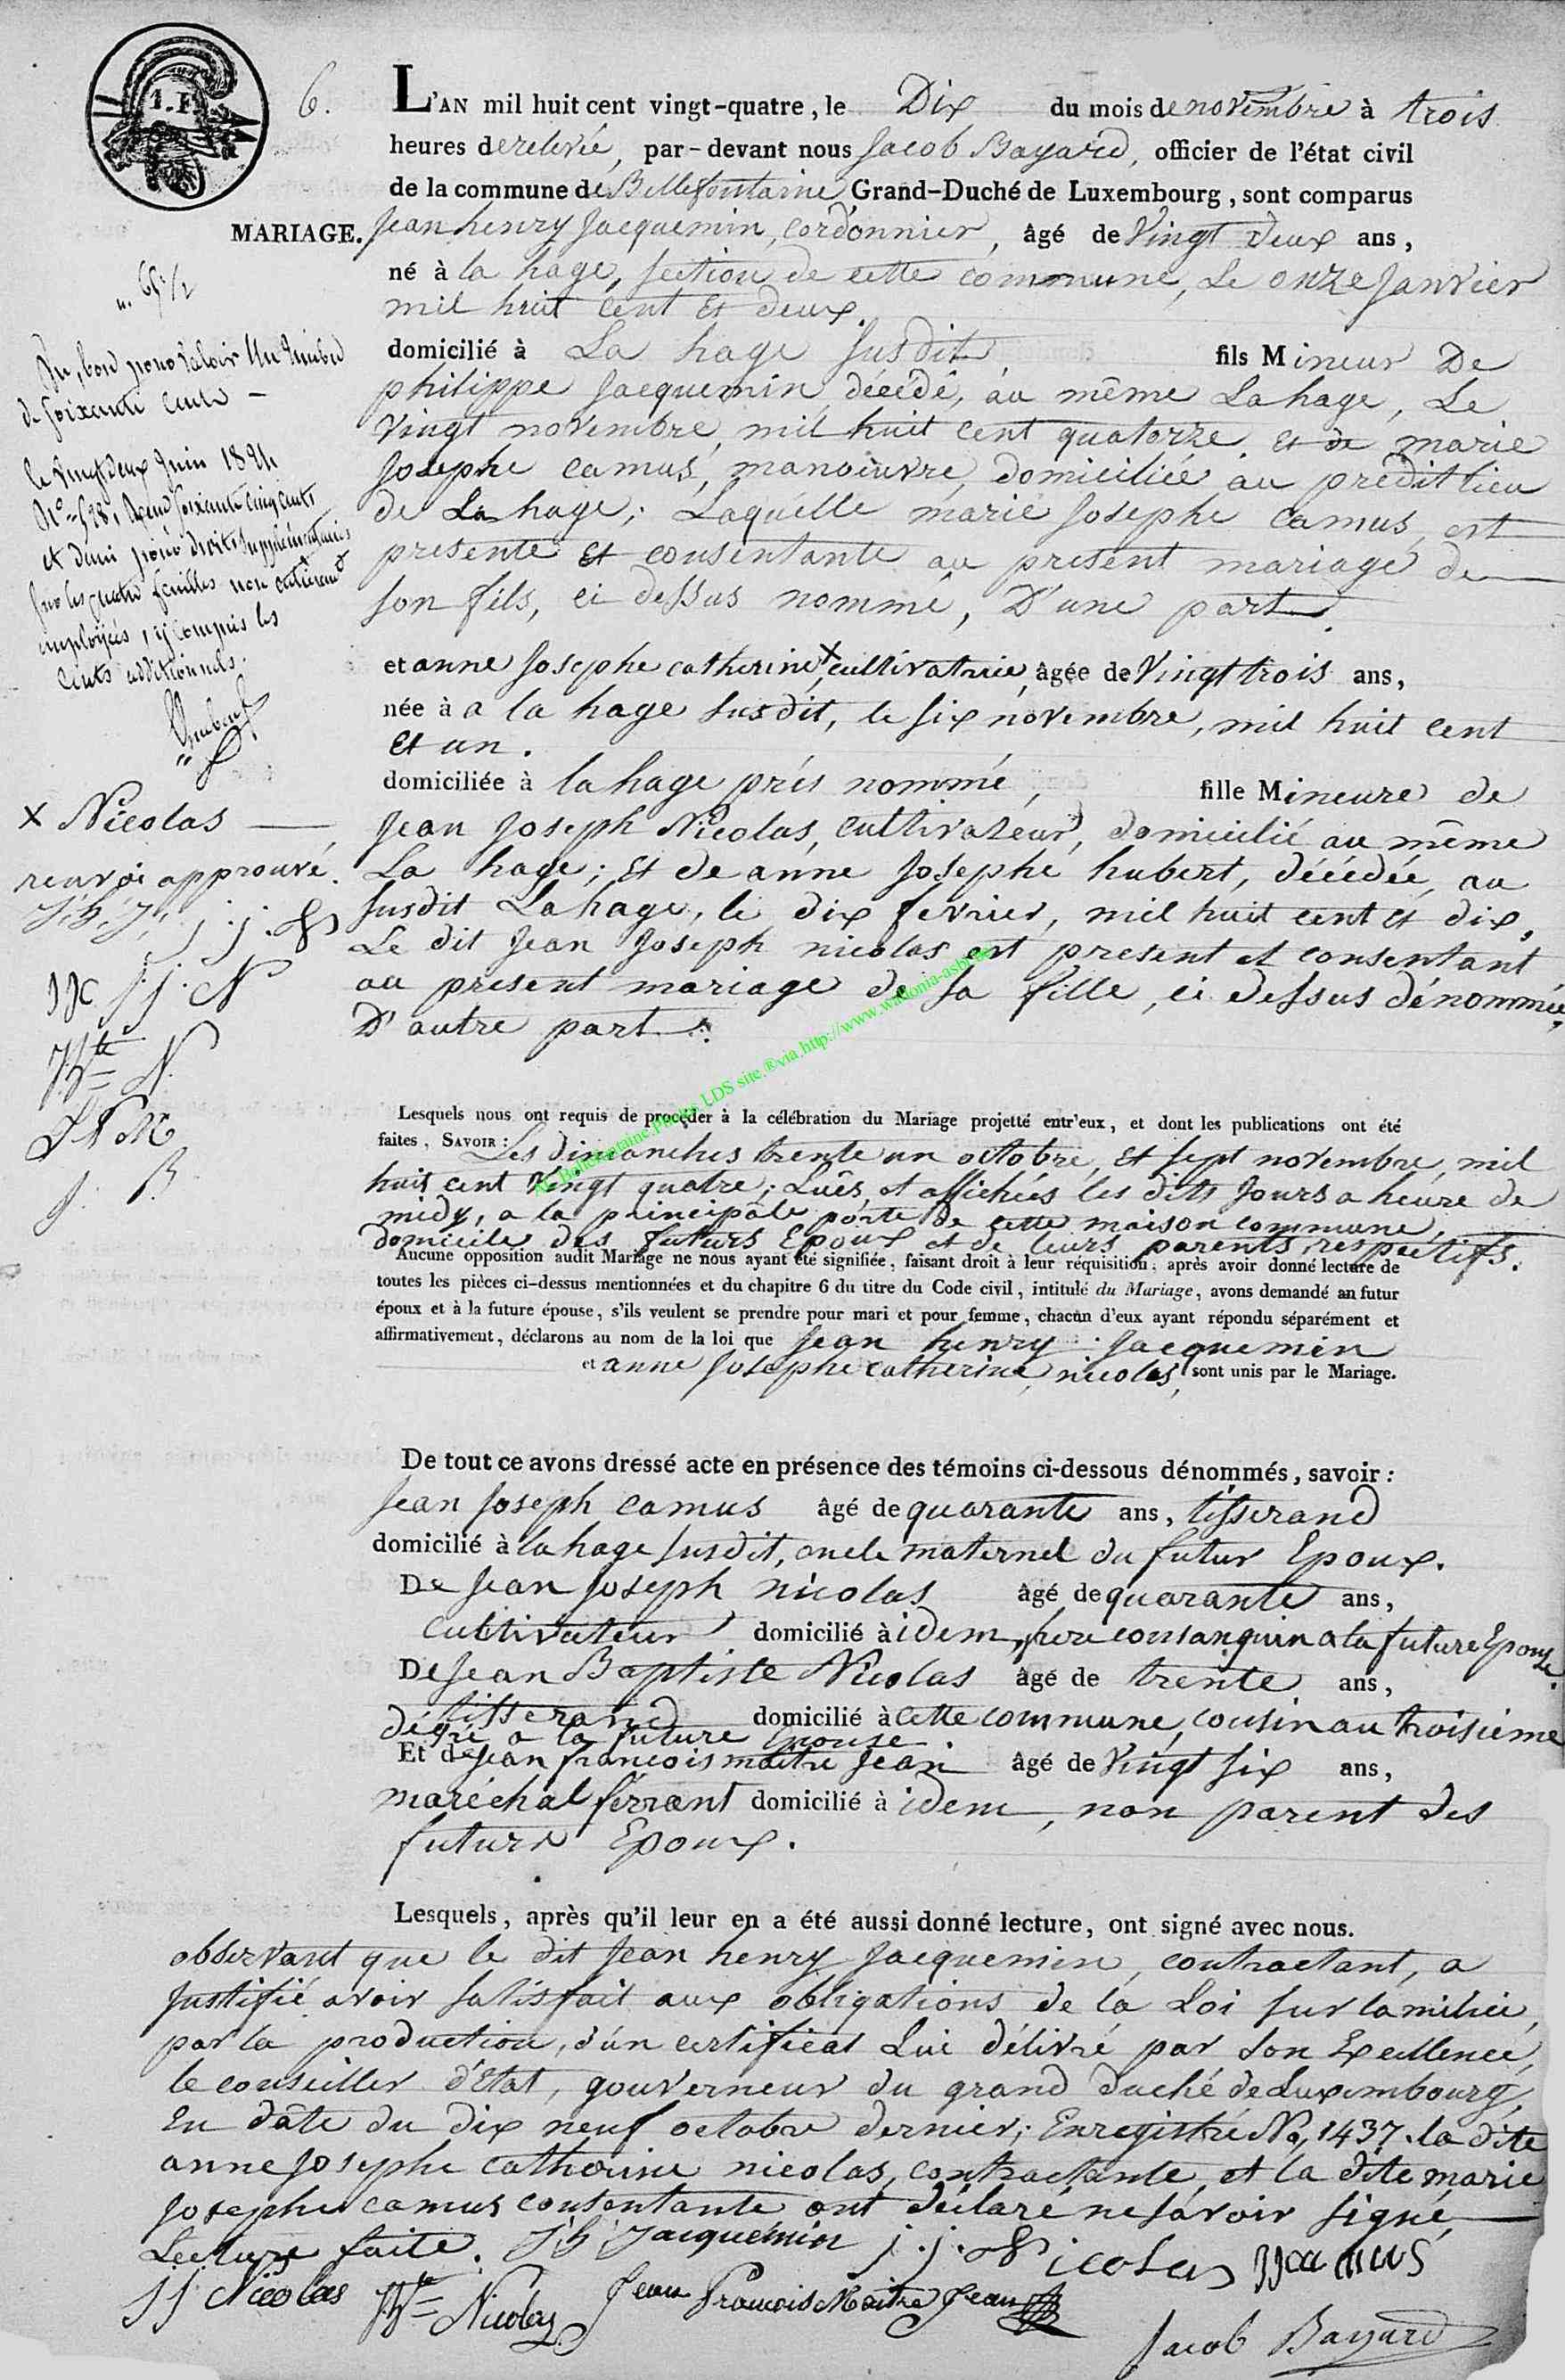 6.
L'AN mil huit cent vingt-quatre, le Dix du mois de novembre à trois
heures de relevée, par-devant nous Jacob Bayard, officier de l'état civil
de la commune de Bellefontaine Grand-Duché de Luxembourg, sont comparus
MARIAGE.
jean henry Jacquemin, cordonnier, âgé de Vingt deux ans,
né à la hage, section de cette commune, Le onze Janvier
mil huit cent et deux.
domicilié à La hage susdit, fils Mineur De
philippe Jacquemin, décédé, au même Lahage, Le
Vingt novembre, mil huit cent quatorze et de marie
Josephe camus, manoeuvre, domiciliée au prédit lieu
de La hage; Laquelle marie Josephe camus, est
presente et consentante au present mariage de
son fils, ci dessus nommé, D'une part.
et anne Josephe catherine x, cultivatrice, âgée de Vingt trois ans,
née à a la hage susdit, le six novembre, mil huit cent
et un.
domiciliée à la hage prés nommé, fille Mineure de
Jean Joseph Nicolas, cultivateur, domicilié au même
La hage; et de anne Josephe hubert, décédée, au
susdit Lahage, le dix fevrier, mil huit cent et dix,
Le dit Jean Joseph nicolas est present et consentant
au present mariage de sa fille, ci dessus dénommée,
D'autre part.
bon pour valoir Un timbre
de soixante cents
le vingt deux Juin 1824
soixante cinq cents
et demi pour droits supplémentaires
sur les quatre feuilles non entièrement
employées, y compris les
cents additionnels.
x Nicolas
renvoi approuvé.
J. h. J. j. j. N
JJC J. J. N
Jbte N.
J F M
J. B
Lesquels nous ont requis de procéder à la célébration du Mariage projetté entr'eux, et dont les publications ont été
faites, SAVOIR: Les dimanches trente un octobre, et sept novembre, mil
huit cent Vingt quatre; Lûes, et affichées les dits Jours a heure de
midy, a la principale porte de cette maison commune,
domicile des futurs Epoux et de leurs parents respectifs.
Aucune opposition audit Mariage ne nous ayant été signifiée, faisant droit à leur réquisition; après avoir donné lecture de
toutes les pièces ci-dessus mentionnées et du chapitre 6 du titre du Code civil, intitulé du Mariage, avons demandé au futur
époux et à la future épouse, s'ils veulent se prendre pour mari et pour femme, chacun d'eux ayant répondu séparément et
affirmativement, déclarons au nom de la loi que Jean henry Jacquemin
et anne Josephe catherine nicolas, sont unis par le Mariage.
De tout ce avons dressé acte en présence des témoins ci-dessous dénommés, savoir:
Jean Joseph camus âgé de quarante ans, tisserand
domicilié à la hage susdit, oncle maternel du futur Epoux.
De Jean Joseph nicolas âgé de quarante ans,
cultivateur domicilié à idem, frere consanguin a la future Epouse.
De Jean Baptiste Nicolas âgé de trente ans,
tisserand domicilié à cette commune, cousin au troisieme
dégré a la future Epouse.
Et de Jean francois maitre Jean âgé de Vingt six ans,
maréchal ferrant domicilié à idem, non parent des
futurs Epoux.
Lesquels, après qu'il leur en a été aussi donné lecture, ont signé avec nous.
observant que le dit Jean henry Jacquemin, contractant, a
Justifié avoir satisfait aux obligations de la Loi sur la milice,
par la production, d'un certificat Lui délivré par son Excellence,
le conseiller d'Etat, gouverneur du grand duché de Luxembourg,
En dâte du dix neuf octobre dernier; Enregistré No. 1437. la dite
anne Josephe catherine nicolas, contractante, et la dite marie
Josephe camus consentante ont déclaré ne savoir signé,
Lecture faite. J h Jacquemin j. j. Nicolas JJ camus
JJ Nicolas Jbte Nicolas Jean Francois Maitre Jean
Jacob Bayard